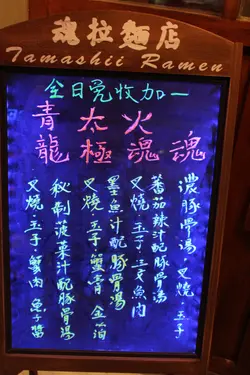 魂拉麵店
Tamashii Ramen
全日免收加一
魂
濃豚骨湯 叉燒 玉子
火魂
番茄辣汁配豚骨湯
叉燒 玉子 三文魚肉
太極
墨魚汁配豚骨湯
叉燒 玉子 蟹膏 金箔
青龍
秘制菠菜汁配豚骨湯
叉燒 玉子 蟹肉 魚子醬